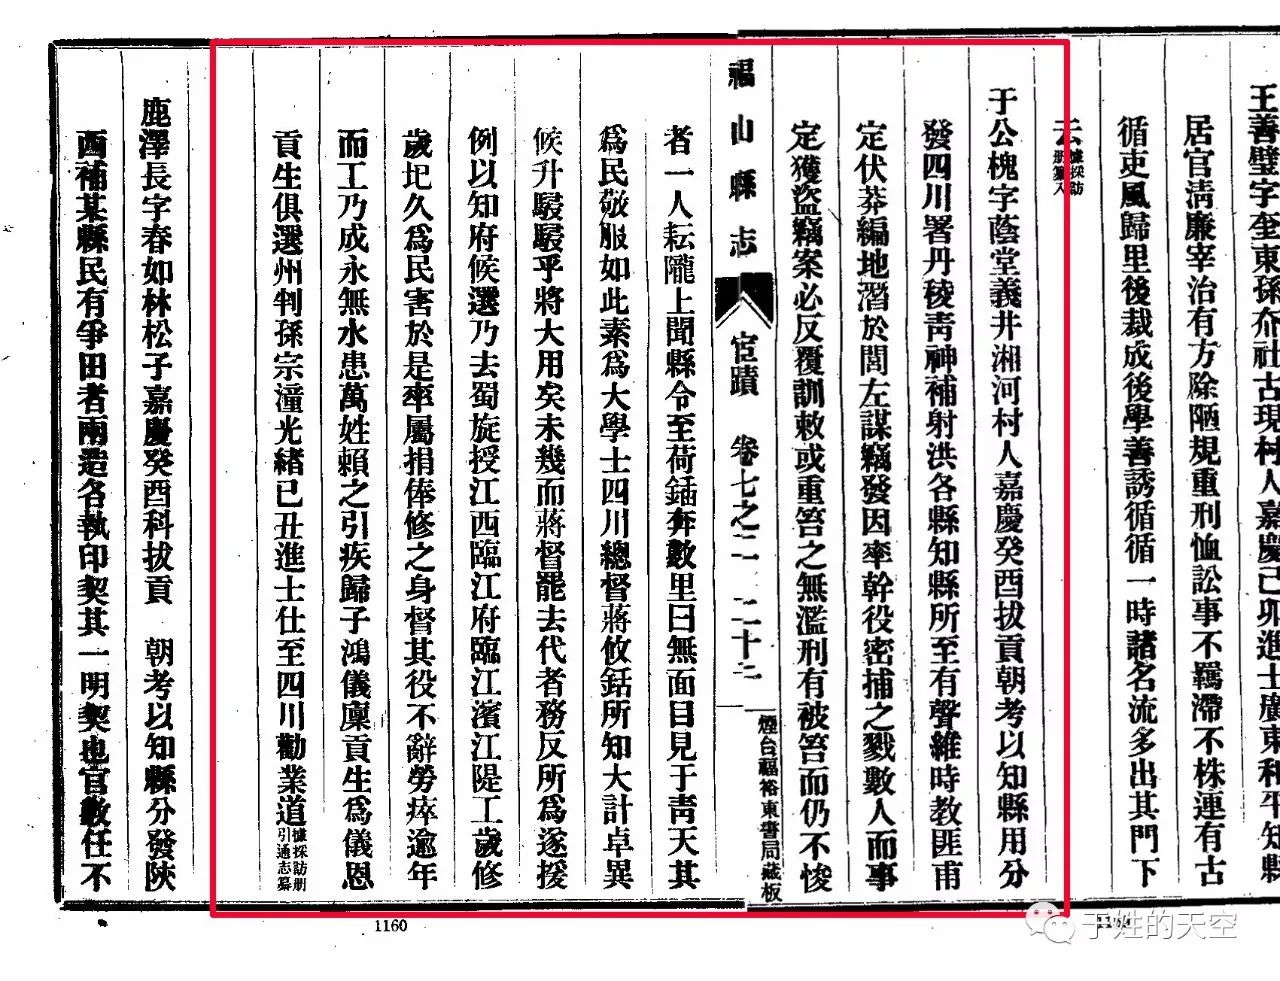 王善璧字奎東孫夼社古現村人嘉慶己卯進士廣東和平知縣
居官清廉宰治有方除陋規重刑恤訟事不羈滯不株連有古
循吏風歸里後裁成後學善誘循循一時諸名流多出其門下
云據採訪
册纂入
于公槐字蔭堂義井湘河村人嘉慶癸酉拔貢朝考以知縣用分
發四川署丹稜靑神補射洪各縣知縣所至有聲維時教匪甫
定伏莽編地潛於閭左謀竊發因率幹役密捕之戮數人而事
定獲盜竊案必反覆訓敕或重笞之無濫刑有被笞而仍不悛
福山縣志
宦蹟 卷七之二 二十七
煙台福裕東書局藏板
者一人耘隴上聞縣令至荷鍤奔數里曰無面目見于靑天其
爲民敬服如此素爲大學士四川總督蔣攸銛所知大計卓異
候升駸駸乎將大用矣未幾而蔣督罷去代者務反所爲遂援
例以知府候選乃去蜀旋授江西臨江府臨江濱江隄工歲修
歲圮久爲民害於是率屬捐俸修之身督其役不辭勞瘁逾年
而工乃成永無水患萬姓賴之引疾歸子鴻儀廩貢生爲儀恩
貢生俱選州判孫宗潼光緒己丑進士仕至四川勸業道據採訪册
引通志纂
鹿澤長字春如林松子嘉慶癸酉科拔貢 朝考以知縣分發陝
西補某縣民有爭田者兩造各執印契其一明契也官數任不
1160
于姓的天空